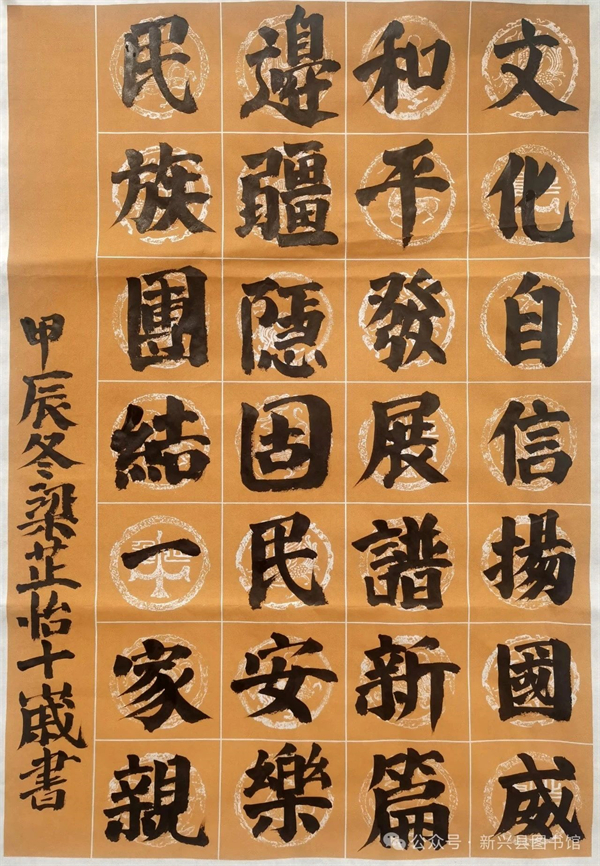 文化自信揚國威
和平發展譜新篇
邊疆隱固民安樂
民族團結一家親
甲辰冬梁芷怡十歲書
公众号·新兴县图书馆